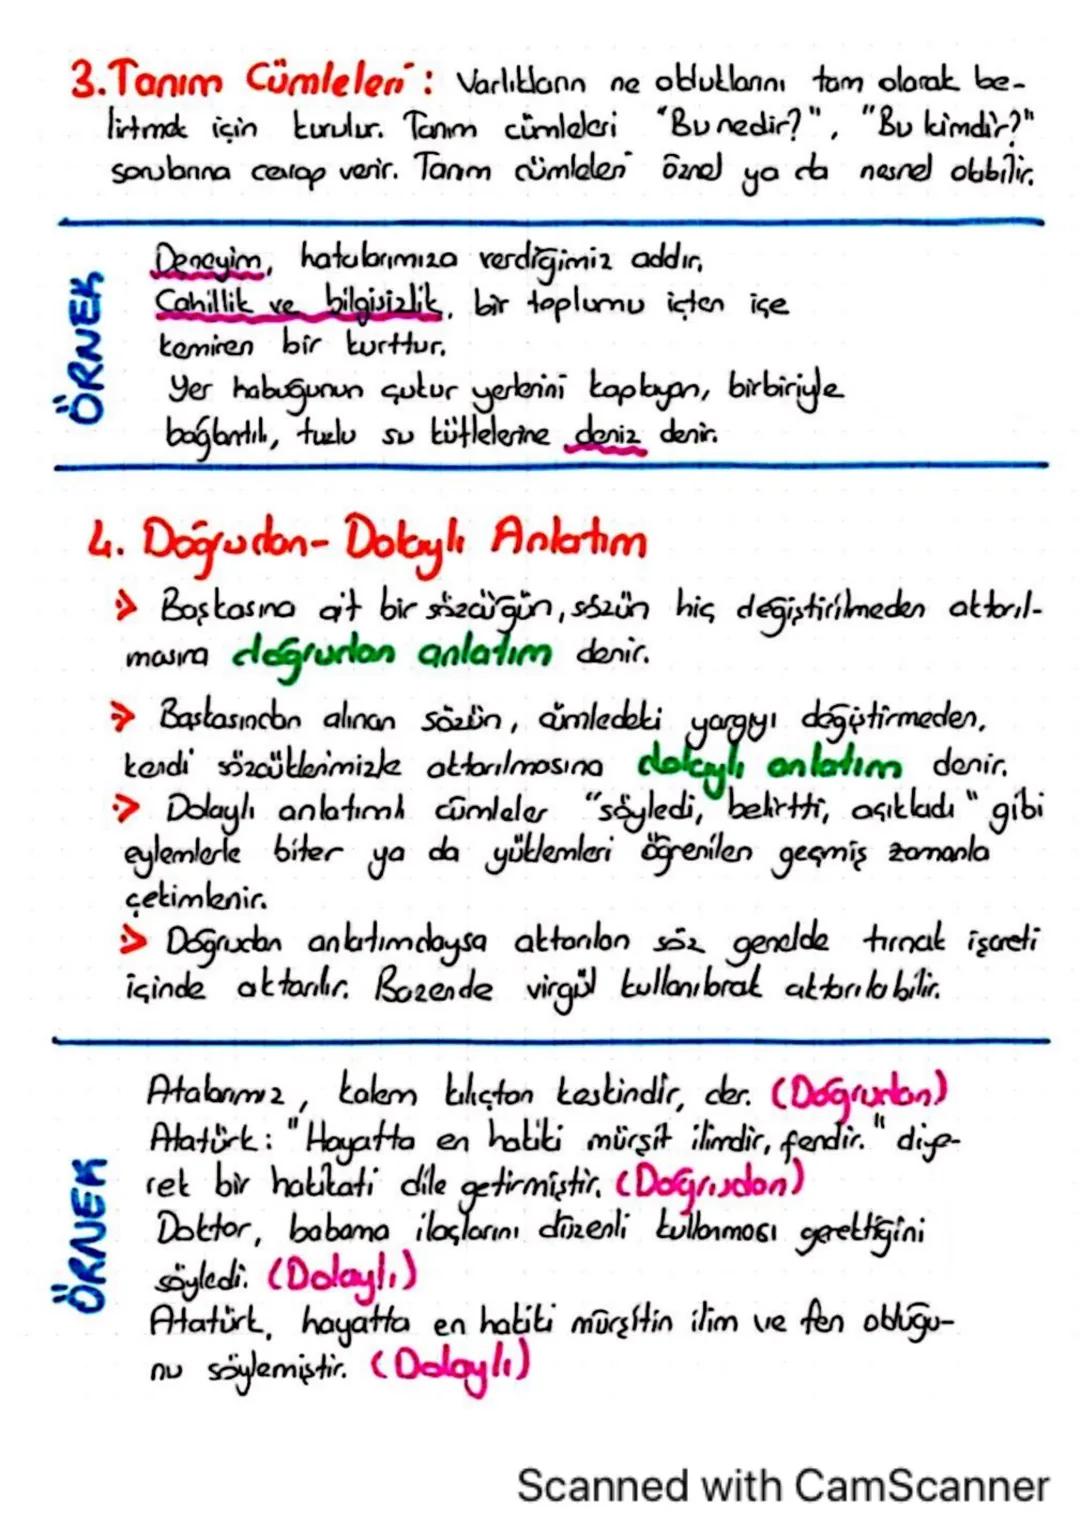 3. Tanım Cümleleri : Varlıkların ne olduklarını tam olarak be-
lirtmek için kurulur. Tanım cümleleri "Bu nedir?", "Bu kimdir?"
sorularına cevap verir. Tanım cümleleri öznel ya da nesnel olabilir.
ÖRNEK
Deneyim, hatalarımıza verdiğimiz addır.
Cahillik ve bilgisizlik, bir toplumu içten içe
kemiren bir kurttur.
Yer habuğunun çukur yerlerini kaplayan, birbiriyle
bağlantılı, tuzlu su kütlelerine deniz denir.
4. Doğrudan- Dolaylı Anlatım
Başkasına ait bir sözcüğün, sözün hiç değiştirilmeden aktarıl-
masına doğrudan anlatım denir.
Başkasından alınan sözün, cümledeki yargıyı değiştirmeden,
kendi sözcüklerimizle aktarılmasına dolaylı anlatım denir.
Dolaylı anlatımlı cümleler "söyledi, belirtti, açıkladı" gibi
eylemlerle biter ya da yüklemleri öğrenilen geçmiş zamanla
çekimlenir.
Doğrudan anlatımdaysa aktarılan söz genelde tırnak işareti
içinde aktarılır. Bazende virgül kullanılarak aktarılabilir.
ÖRNEK
Atalarımız, kalem kılıçtan keskindir, der. (Doğrudan)
Atatürk: "Hayatta en hakiki mürşit ilimdir, fendir." diye-
rek bir hakikati dile getirmiştir. (Doğrudan)
Doktor, babama ilaçlarını düzenli kullanması gerektiğini
söyledi. (Dolaylı)
Atatürk, hayatta en hakiki mürşitin ilim ve fen olduğu-
nu söylemiştir. (Dolaylı)
Scanned with CamScanner